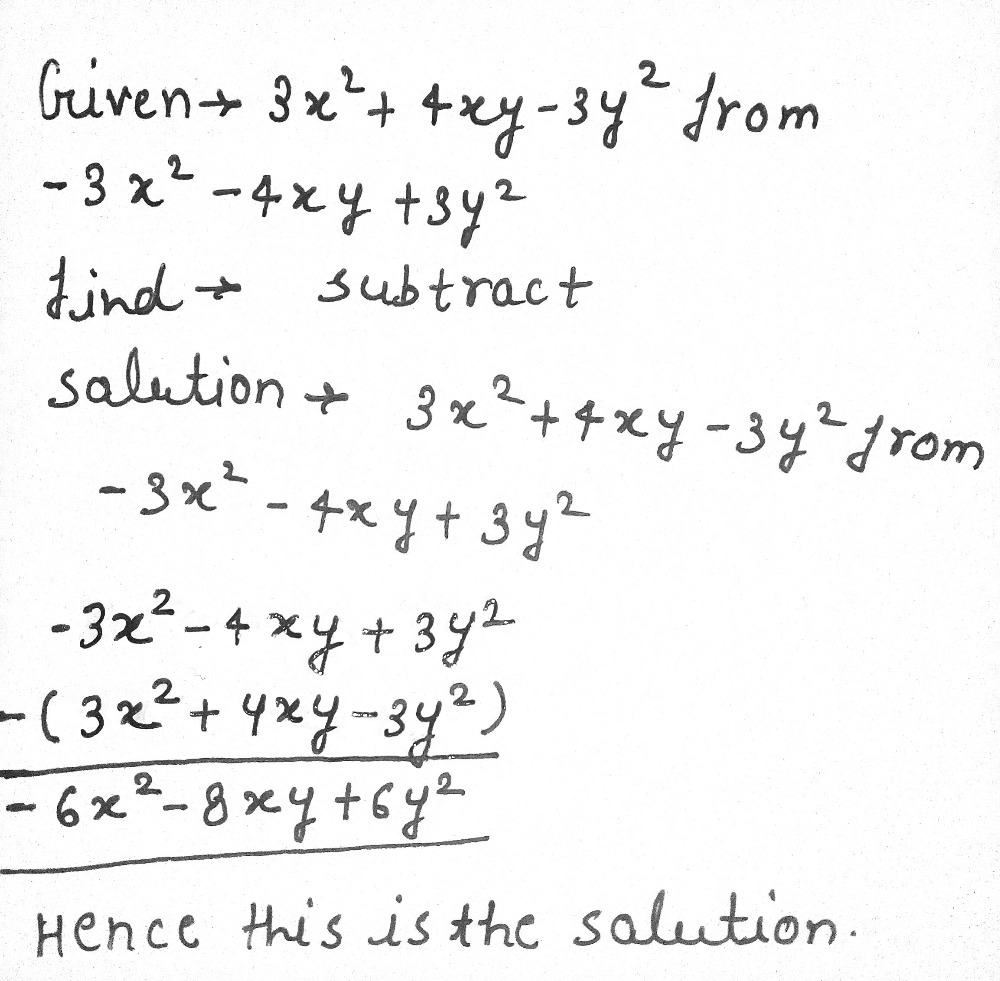 Given→ 3x²+ 4xy-3y² from
-3x² -4xy +3y²
find→ subtract
salution→ 3x²+4xy-3y² from
-3x² - 4xy + 3y²
-3x² - 4xy + 3y²
-( 3x²+ 4xy-3y²)
-6x²-8xy+6y²
Hence this is the salution.